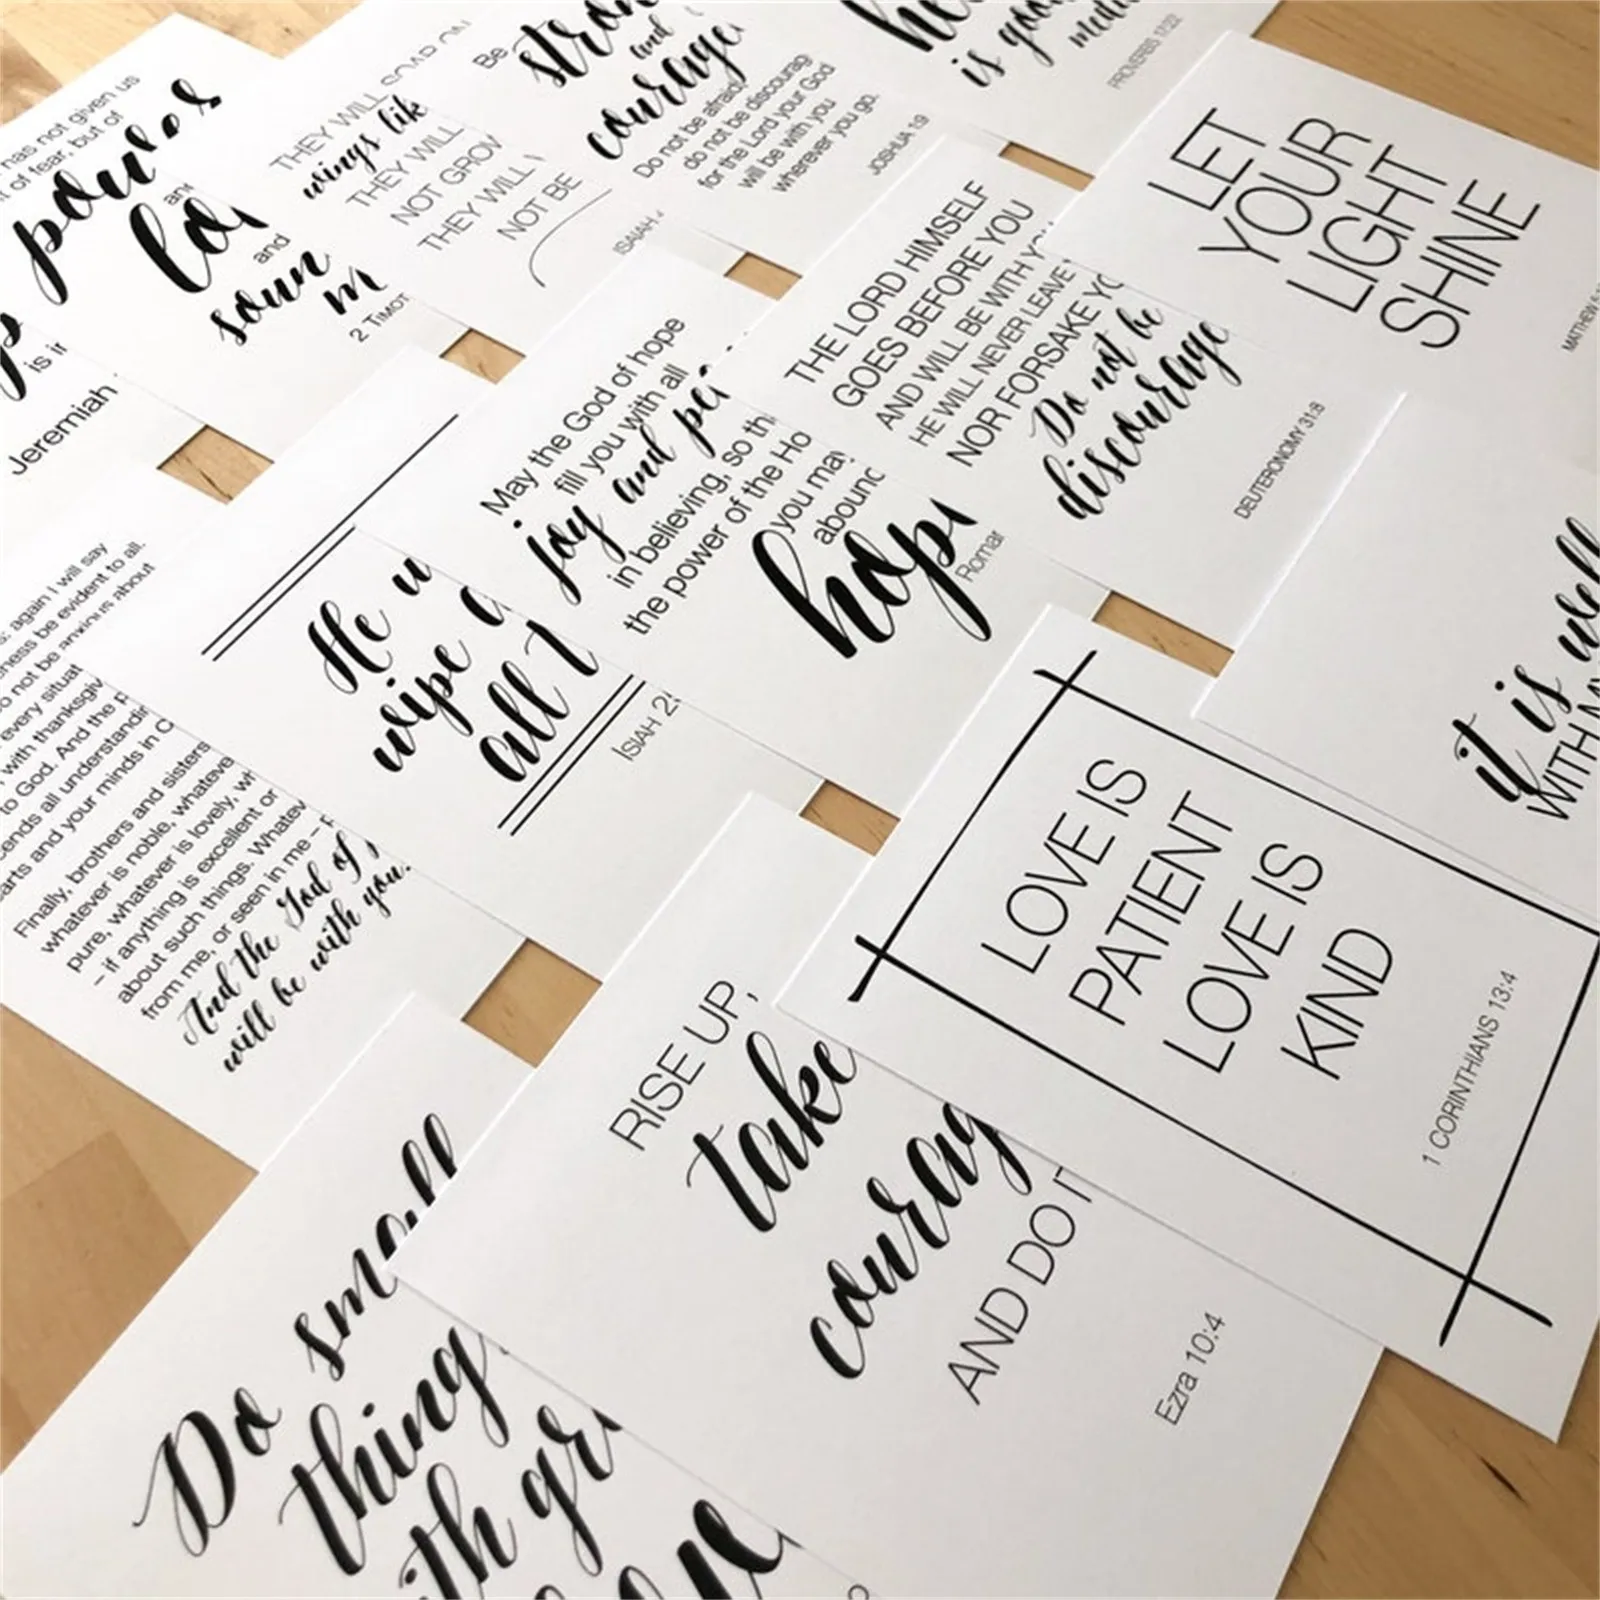 has not given us
of fear, but of
power
and
and
soun
m
2 TIMOT
is in
Jeremiah
THEY WILL SOAR ON
wings lik
THEY WILL
NOT GROW
THEY WILL
NOT BE
ISAIAH
Be
strong
and
courage
Do not be afraid
do not be discourag
for the Lord your God
will be with you
wherever you go.
JOSHUA 1:9
is good
medi
PROVERBS 17:22
LET
YOUR
LIGHT
SHINE
MATTHEW 5:1
THE LORD HIMSELF
GOES BEFORE YOU
AND WILL BE WITH YOU
HE WILL NEVER LEAVE
NOR FORSAKE YO
Do not be
discourage
DEUTERONOMY 31:8
May the God of hope
fill you with all
joy and pea
in believing, so tha
the power of the Ho
you may
abound
hope
Romar
He w
wipe
all t
ISIAH 2
again I will say
be evident to all.
do not be anxious about
every situat
with thanksgiv
to God. And the p
cends all understandin
arts and your minds in C
Finally, brothers and sisters
whatever is noble, whateve
pure, whatever is lovely, wh
– if anything is excellent or
about such things. Whatev
from me, or seen in me – p
And the God of
will be with you.
it is well
WITH MY
LOVE IS
PATIENT
LOVE IS
KIND
1 CORINTHIANS 13:4
RISE UP,
take
courag
AND DO IT
Ezra 10:4
Do small
thing
ith gre